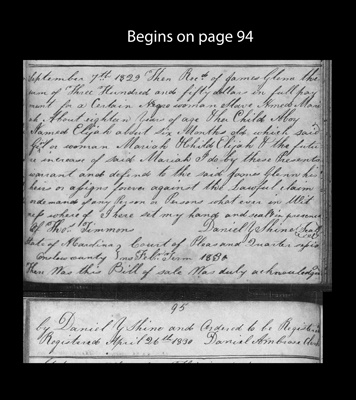 Begins on page 94
September 7th 1829 Then Recd. of James Glenn the
sum of Three Hundred and fifty dollars in full pay
ment for a Certain Negro woman Slave Named Mari
ah, About eighteen Years of age The Child a boy
Named Elijah about six Months old, which said
woman Mariah & Child Elijah & the futu
re increase of said Mariah I do by these Presents
warant and defend to the said James Glenn his
heirs or asigns forever against the Lawful claim
or demand of any Person or Persons what ever in Wit
ness whereof I here set my hand and seal in presence
of Thos. Simmon Daniel Y Shine {Seal}
State of N Carolina Court of Pleas and Quarter
county Febr. Term 1830
Then Was this Bill of sale Was duly acknowledged
95
by Daniel Y Shine and Ordered to be Registered
Registered April 26th 1830 Daniel Ambrose